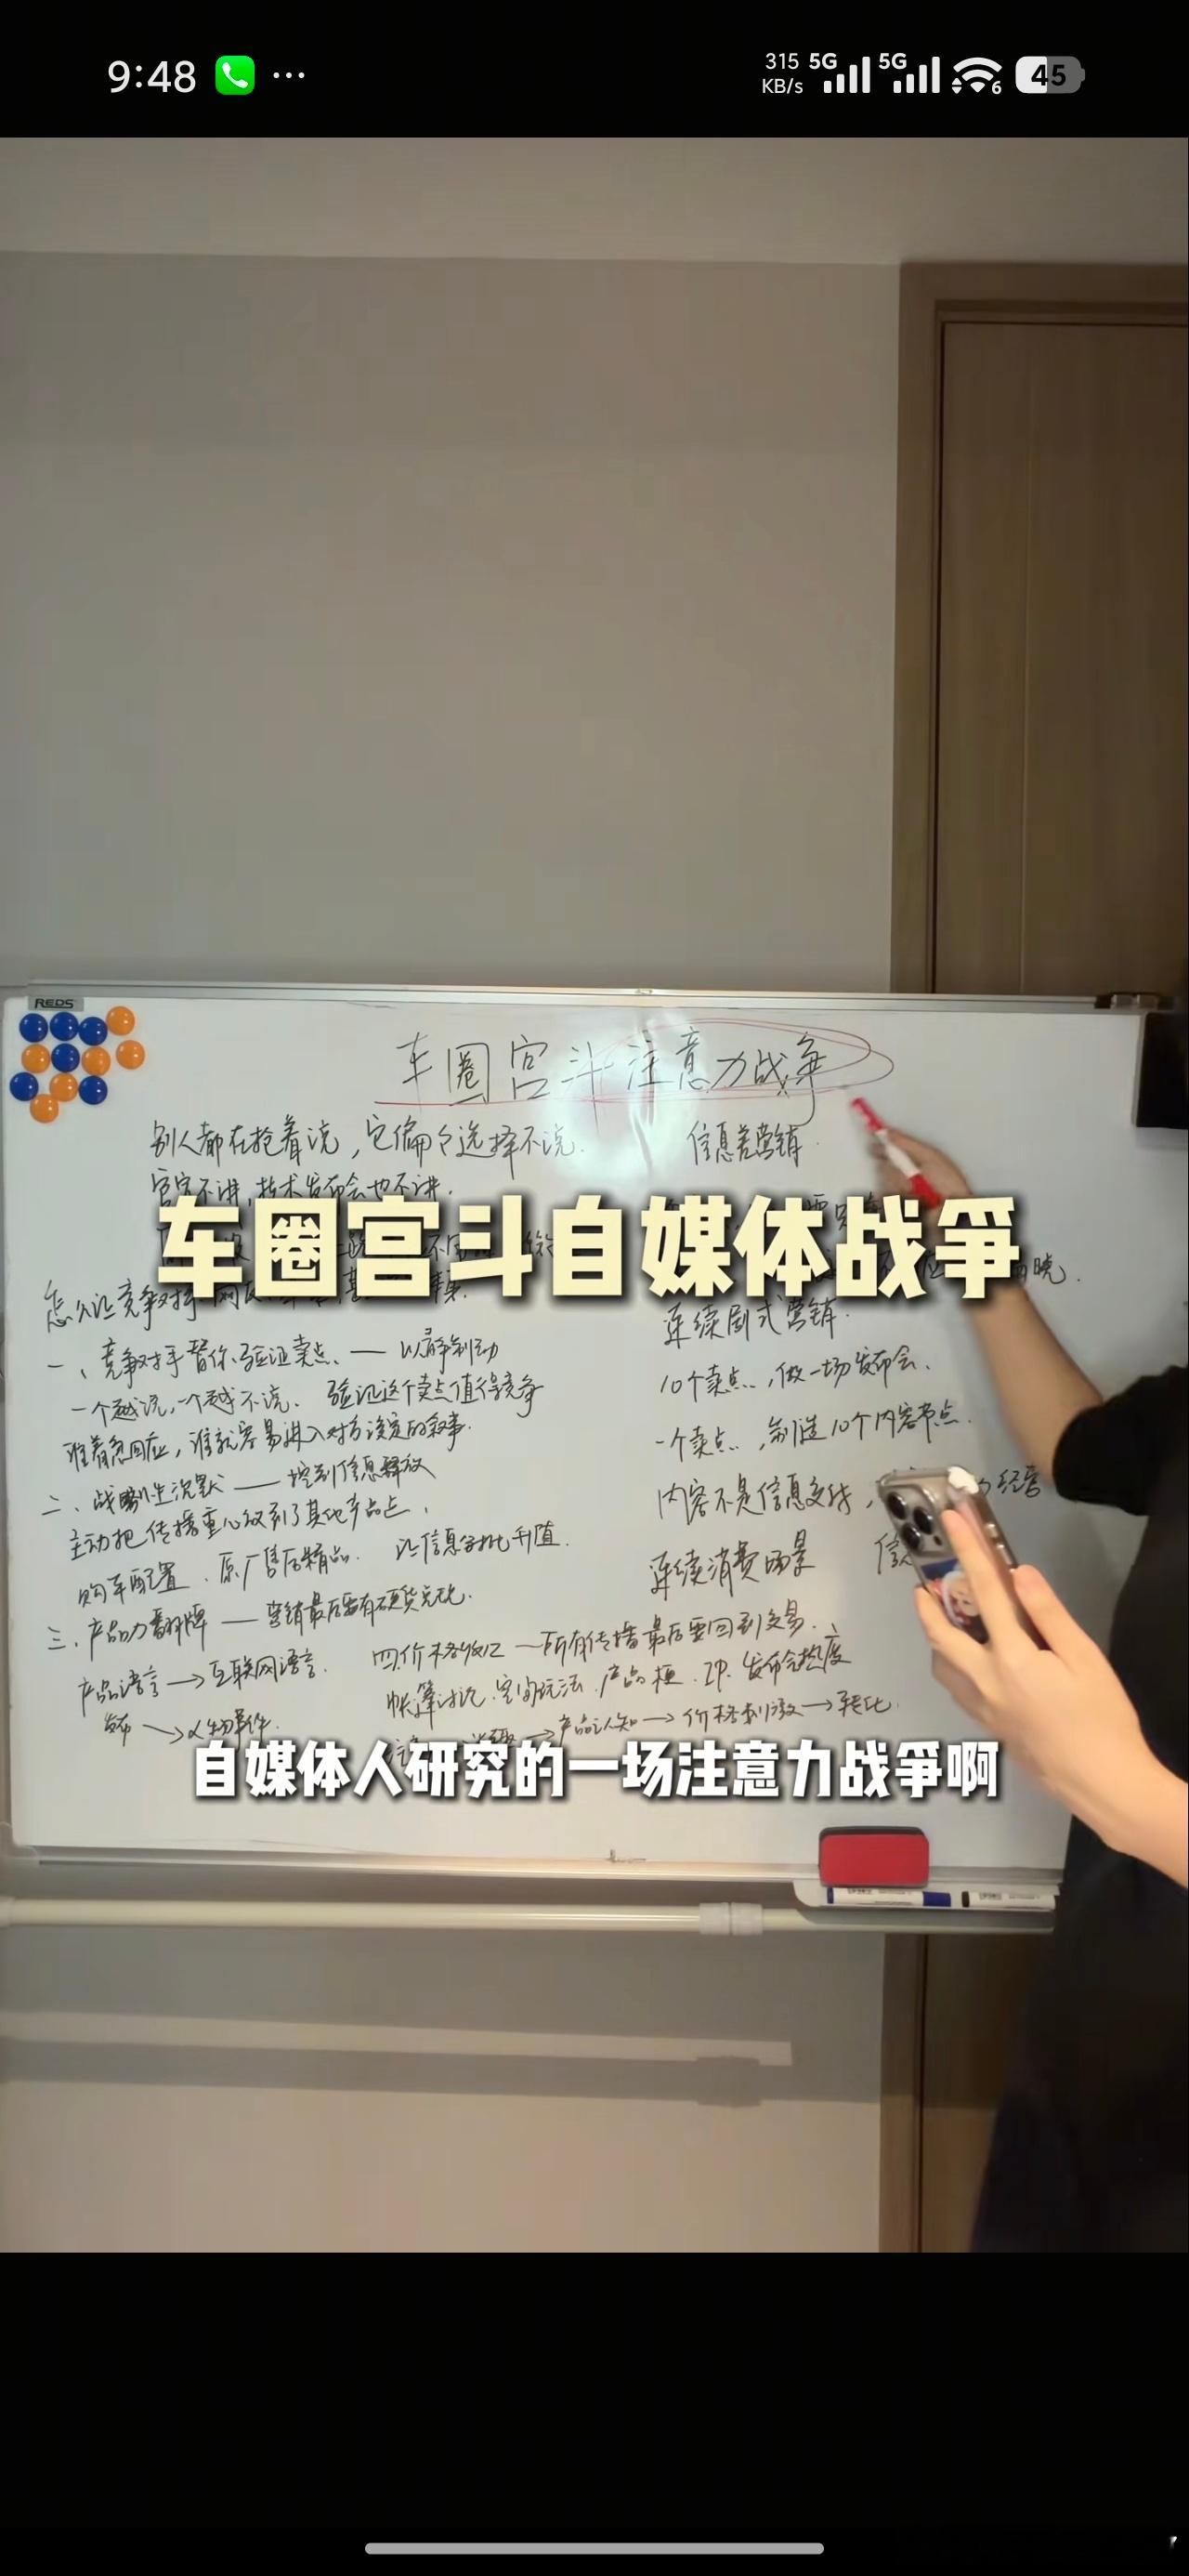 9:48
315 KB/s 5G 5G 6 45
REDS
车圈宫斗注意力战争
别人都在抢着说，它偏偏选择不说.
信息差营销.
官宣不讲，技术发布会也不讲.
车圈宫斗自媒体战争
怎么让竞争对手
晓.
连续剧式营销.
一、竞争对手替你验证卖点. — 以静制动
10个卖点，做一场发布会.
一个越说，一个越不说. 验证这个卖点值得竞争
一个卖点，制造10个内容节点.
谁着急回应，谁就容易进入对方设定的叙事.
二、战略性沉默 — 控制信息释放
内容不是信息交代，
经营
主动把传播重心放到了其他产品上，
购车配置、原厂售后精品. 让信息分批升值.
连续消费场景
三、产品力翻牌 — 营销最后要有硬货兑现.
四.价格收口 — 所有传播最后要回到交易.
产品语言 → 互联网语言.
帐篷讨论、空间玩法、产品梗、IP、发布会热度
发布 → 人物事件.
→ 产品认知 → 价格刺激 → 转化.
自媒体人研究的一场注意力战争啊